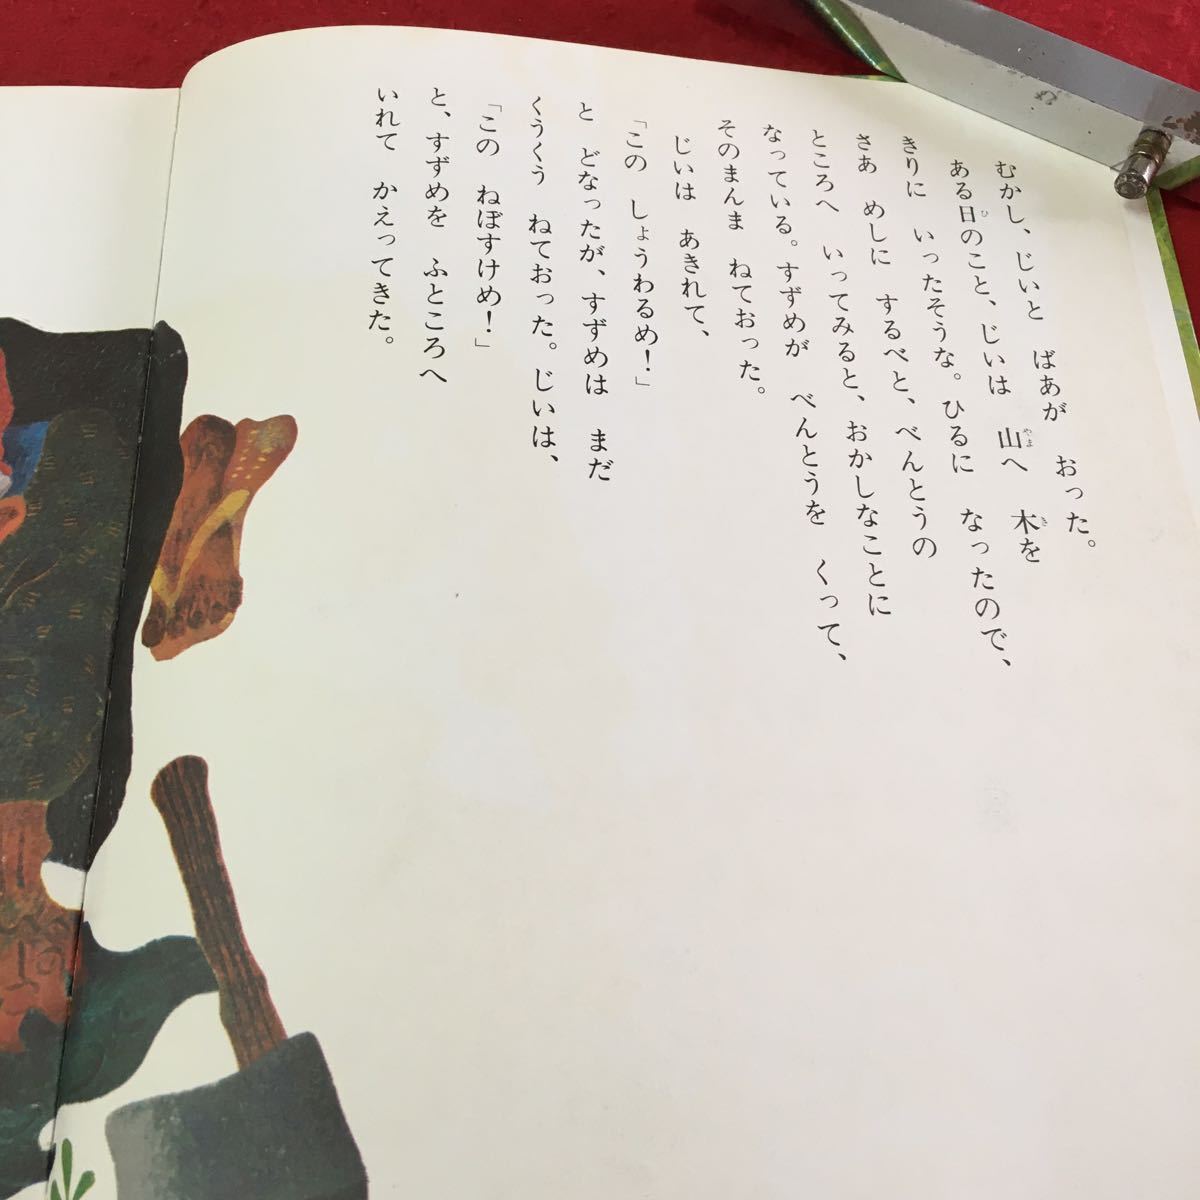 むかし、じいと　ばあが　おった。
ある日のこと、じいは　山へ　木を
きりに　いったそうな。ひるに　なったので、
さあ　めしに　するべと、べんとうの
ところへ　いってみると、おかしなことに
なっている。すずめが　べんとうを　くって、
そのまんま　ねておった。
じいは　あきれて、
「この　しょうわるめ！」
と　どなったが、すずめは　まだ
くうくう　ねておった。じいは、
「この　ねぼすけめ！」
と、すずめを　ふところへ
いれて　かえってきた。